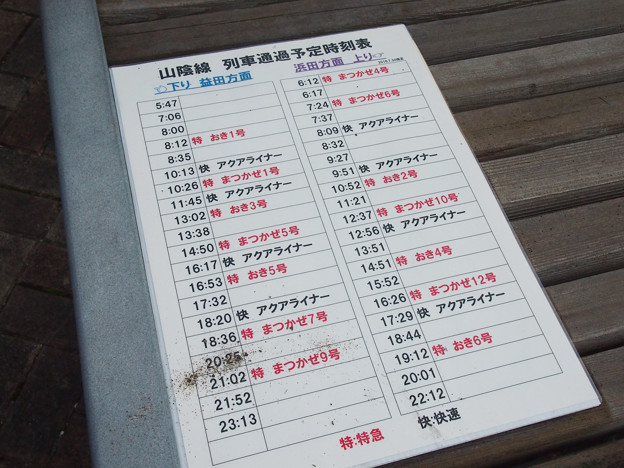 山陰線 列車通過予定時刻表
下り 益田方面
5:47
7:06
8:00
8:12 特 おき1号
8:35
10:13 快 アクアライナー
10:26 特 まつかぜ1号
11:45 快 アクアライナー
13:02 特 おき3号
13:38
14:50 特 まつかぜ5号
16:17 快 アクアライナー
16:53 特 おき5号
17:32
18:20 快 アクアライナー
18:36 特 まつかぜ7号
20:25
21:02 特 まつかぜ9号
21:52
23:13
浜田方面 上り
6:12 特 まつかぜ4号
6:17
7:24 特 まつかぜ6号
7:37
8:09 快 アクアライナー
8:32
9:27
9:51 快 アクアライナー
10:52 特 おき2号
11:21
12:37 特 まつかぜ10号
12:56 快 アクアライナー
13:51
14:51 特 おき4号
15:52
16:26 特 まつかぜ12号
17:29 快 アクアライナー
18:44
19:12 特 おき6号
20:01
22:12
特:特急 快:快速